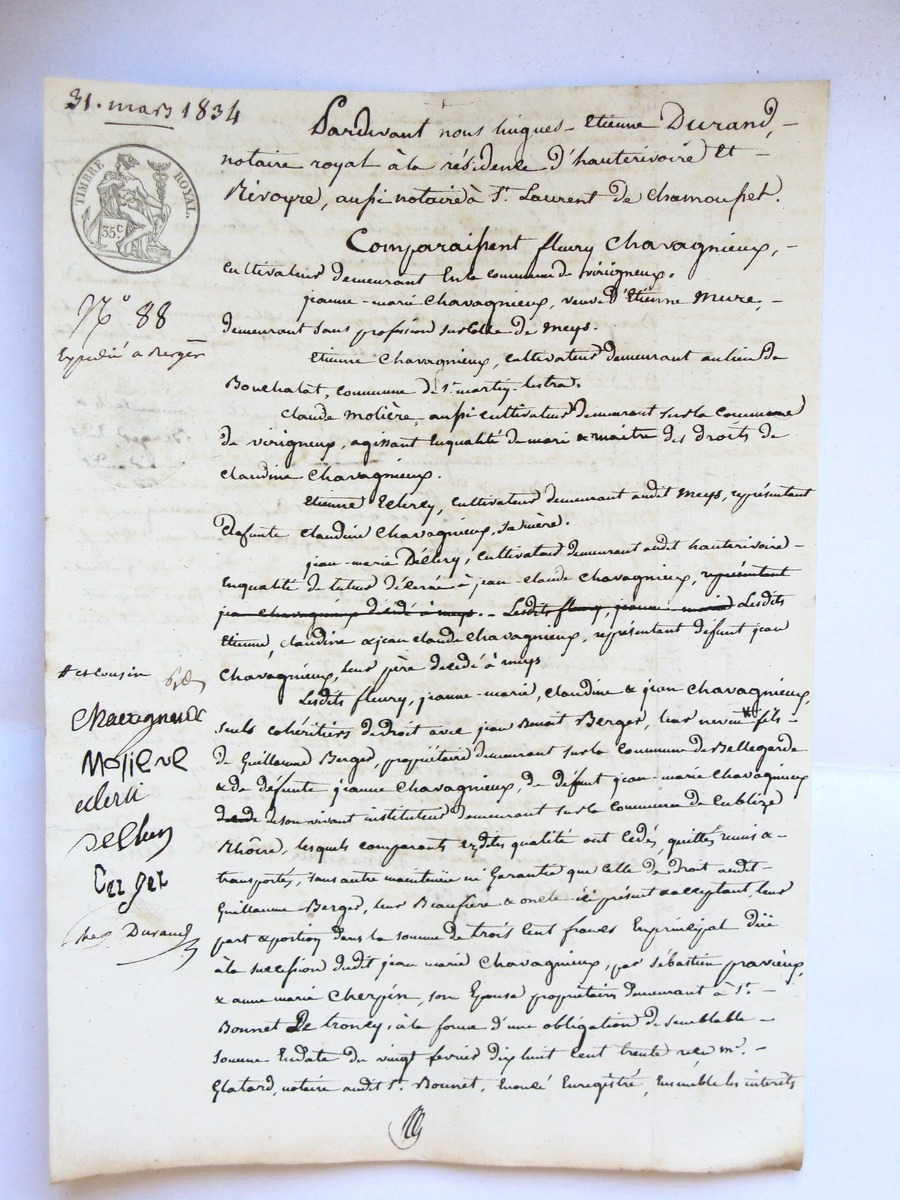 31. mars 1834
TIMBRE ROYAL.
35c
N° 88
Expédié a Berger
Pardevant nous Etienne Durand,
notaire royal à la résidence d'hauterivoire Et
Rivoyre, aussi notaire à St. Laurent de chamousset.
Comparaissent fleury Chavagnieux,
cultivateur demeurant En la commune de virigneux.
jeanne-marie Chavagnieux, veuve d'Etienne Mure,
demeurant sans profession sur celle de Meys.
Etienne Chavagnieux, cultivateur demeurant au lieu de
Bouchalat, commune de St. martin-lestra.
Claude Molière, aussi cultivateur demeurant sur la commune
de virigneux, agissant En qualité de mari & maitre des droits de
claudine Chavagnieux.
Etienne, cultivateur demeurant audit Meys, représentant
Defunte Claudine Chavagnieux, sa mère.
jean-marie, cultivateur demeurant audit hauterivoire
En qualité de tuteur à jean-claude Chavagnieux, représentant
jean chavagnieux décédé à meys. - Lesdits fleury, jeanne-marie Lesdits
Etienne, claudine & jean claude Chavagnieux, représentant défunt jean
Chavagnieux, leur père décédé à meys
Lesdits fleury, jeanne-marie, claudine & jean Chavagnieux,
seuls cohéritiers de Droit avec jean Benoit Berger, leur neveu # fils
de Guillaume Berger, propriétaire demeurant sur la commune de Bellegarde
& de défunte jeanne Chavagnieux, de défunt jean-marie Chavagnieux
de son vivant instituteur demeurant sur la commune de Cublize
Rhône, lesquels comparants esdites qualité ont cédé, quitté, remis &
transportés, sans autre maintenüe ni Garantie que celle de Droit audit
Guillaume Berger, leur Beaufrère & oncle ici présent & acceptant, leur
part & portion dans la somme de trois cent francs En principal düe
à la succession dudit jean marie Chavagnieux, par sébastien pravieux,
& anne marie Cherpin, son Epouse propriétaires demeurant à St.
Bonnet De troncy, à la forme d'une obligation de semblable
somme En date du vingt fevrier dix huit cent trente reçu me.
Glatard, notaire audit St. Bonnet, Enoncé Enregistré, Ensemble les interets
# et cousin
Chavagnieux
Moliere
Berger
Durand